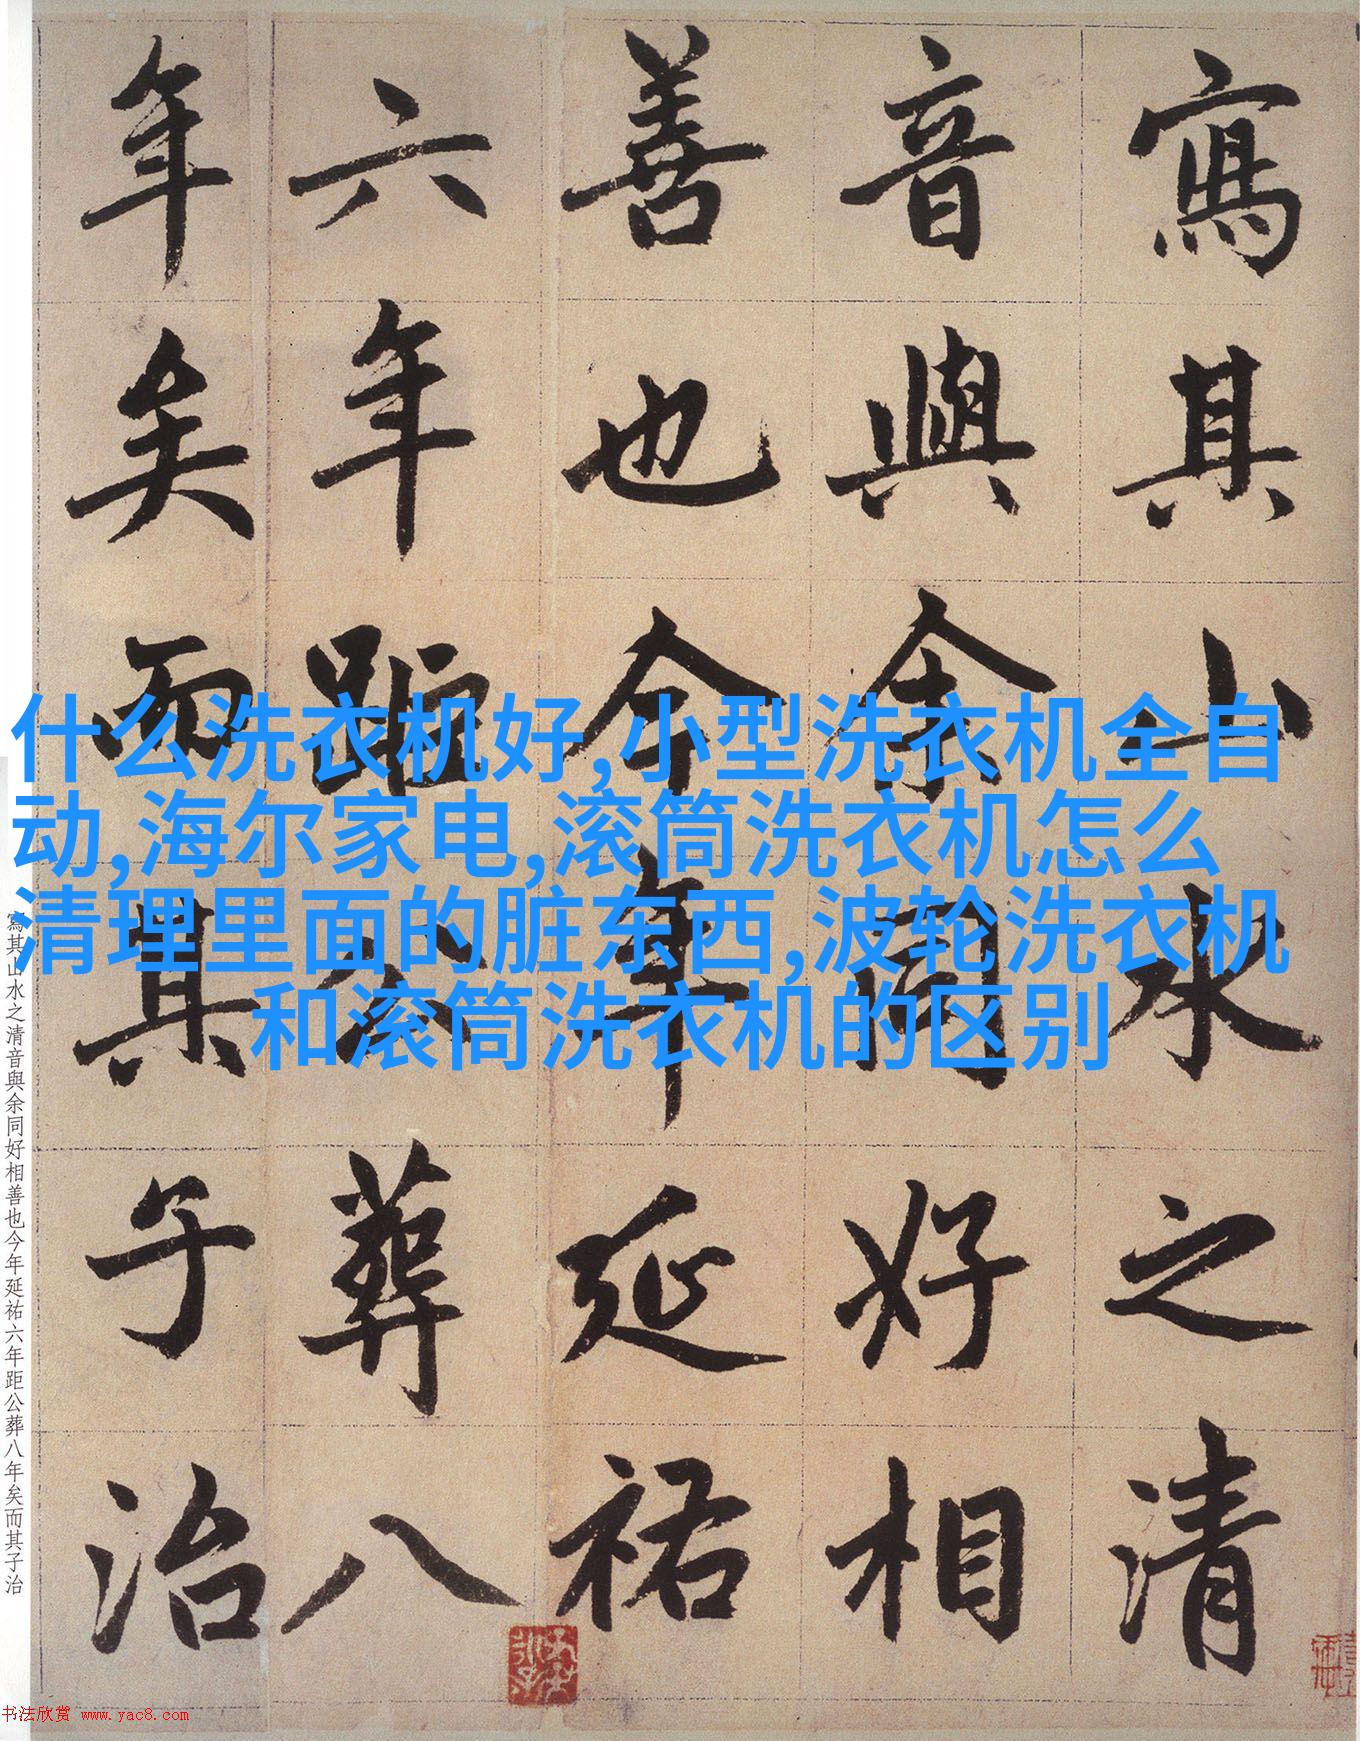 什么洗衣机好,小型洗衣机全自
动,海尔家电,滚筒洗衣机怎么
清理里面的脏东西,波轮洗衣机
和滚筒洗衣机的区别
寫其山水之清
音與余同好相
善也今年延祐
六年距公葬八
年矣而其子治
寫其山水之清音與余同好相善也今年延祐六年距公葬八年矣而其子治
书法欣赏 www.yac8.com